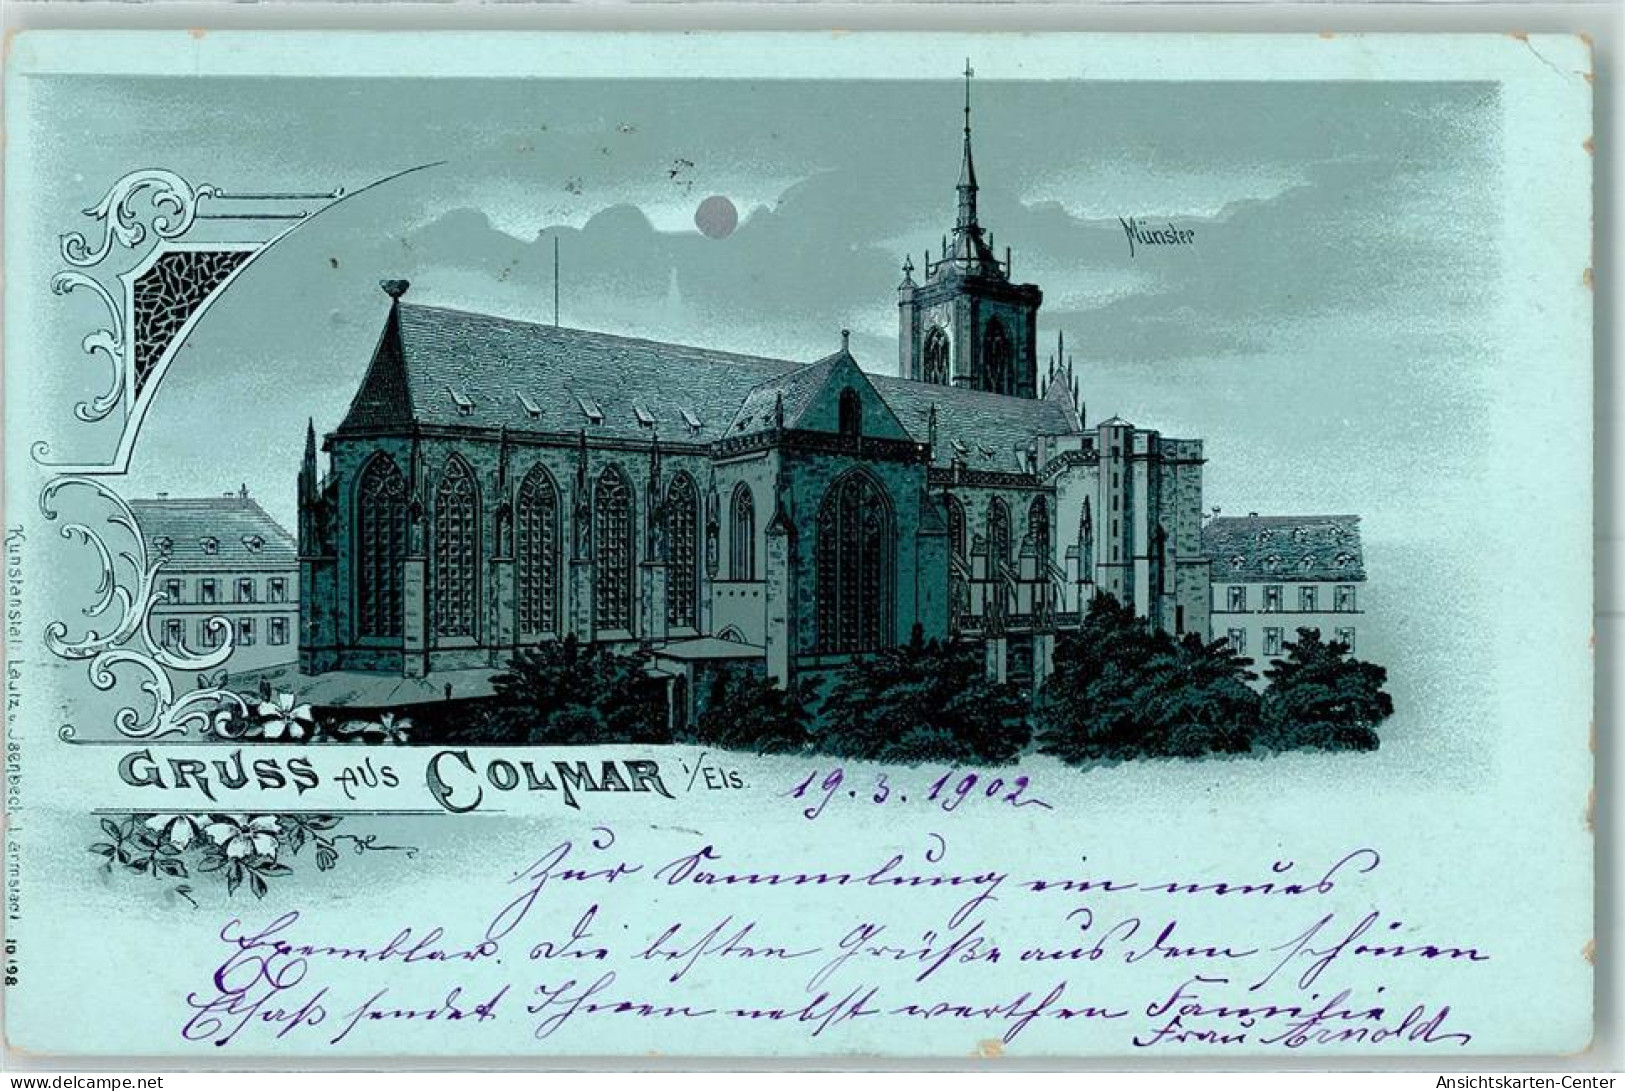 Münster
GRUSS AUS COLMAR i/Els.
19. 3. 1902
Zur Sammlung ein neues
Exemplar. Die besten Grüße aus dem schönen
Elsaß sendet Ihnen nebst werthen Familie
Frau Arnold
Kunstanstalt Lautz u. Isenbeck, Darmstadt. 10 98
www.delcampe.net
Ansichtskarten-Center